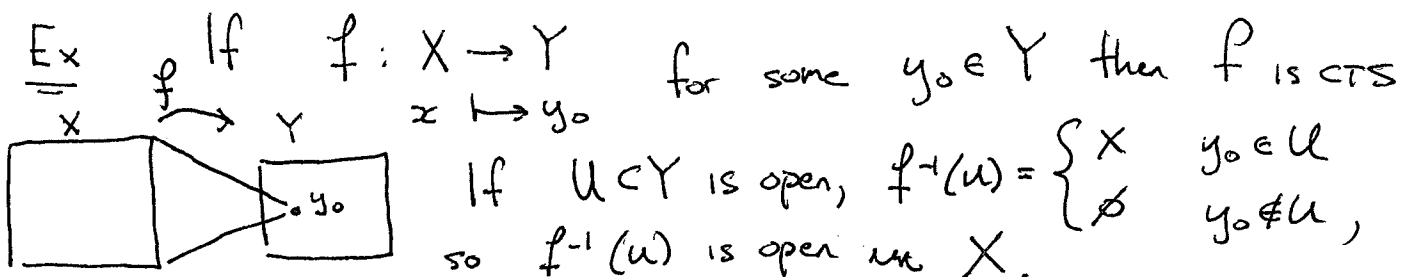 Ex If f : X → Y for some y₀ ∈ Y then f is CTS
x ↦ y₀
f
X Y
• y₀
If U ⊂ Y is open, f⁻¹(U) = { X y₀ ∈ U
∅ y₀ ∉ U,
so f⁻¹(U) is open in X.